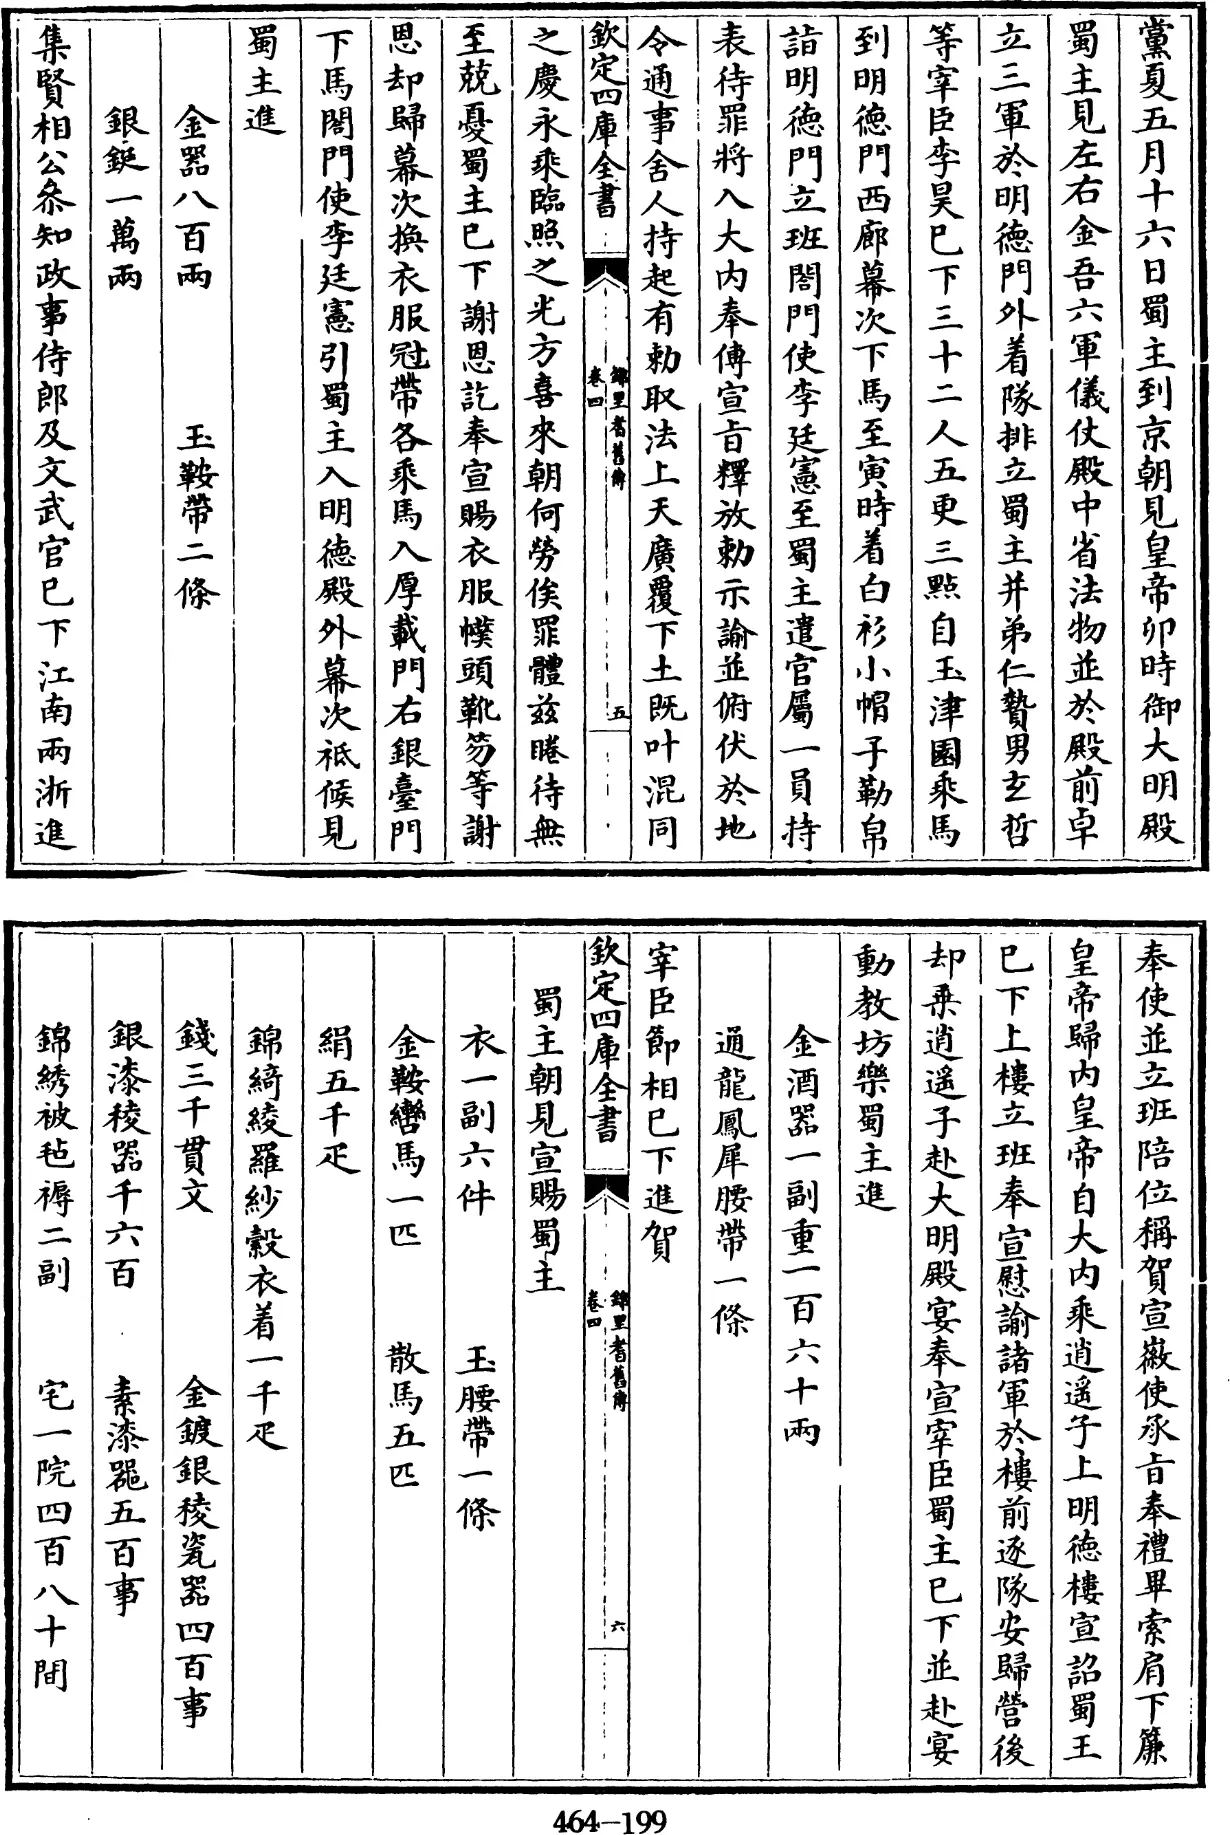 黨夏五月十六日蜀主到京朝見皇帝卯時御大明殿
蜀主見左右金吾六軍儀仗殿中省法物並於殿前卓
立三軍於明德門外着隊排立蜀主并弟仁贄男玄哲
等宰臣李昊巳下三十二人五更三點自玉津園乘馬
到明德門西廊幕次下馬至寅時着白衫小帽子勒帛
詣明德門立班閤門使李廷憲至蜀主遣官屬一員持
表待罪將入大内奉傳宣旨釋放勅示諭並俯伏於地
令通事舍人持起有勅取法上天廣覆下土既叶混同
欽定四庫全書
錦里耆舊傳
卷四
五
之慶永乘臨照之光方喜來朝何勞俟罪體兹睠待無
至兢憂蜀主巳下謝恩訖奉宣賜衣服幞頭靴笏等謝
恩却歸幕次換衣服冠帶各乘馬入厚載門右銀臺門
下馬閤門使李廷憲引蜀主入明德殿外幕次祗候見
蜀主進
金器八百兩 玉鞍帶二條
銀鋌一萬兩
集賢相公叅知政事侍郎及文武官巳下江南兩浙進
奉使並立班陪位稱賀宣徽使承旨奉禮畢索肩下簾
皇帝歸内皇帝自大内乘逍遥子上明德樓宣詔蜀王
巳下上樓立班奉宣慰諭諸軍於樓前逐隊安歸營後
却乗逍遥子赴大明殿宴奉宣宰臣蜀主巳下並赴宴
動教坊樂蜀主進
金酒器一副重一百六十兩
通龍鳳犀腰帶一條
宰臣節相巳下進賀
欽定四庫全書
錦里耆舊傳
卷四
六
蜀主朝見宣賜蜀主
衣一副六件 玉腰帶一條
金鞍轡馬一匹 散馬五匹
絹五千疋
錦綺綾羅紗縠衣着一千疋
錢三千貫文 金鍍銀稜瓷器四百事
銀漆稜器千六百 素漆器五百事
錦綉被毡褥二副 宅一院四百八十間
464-199